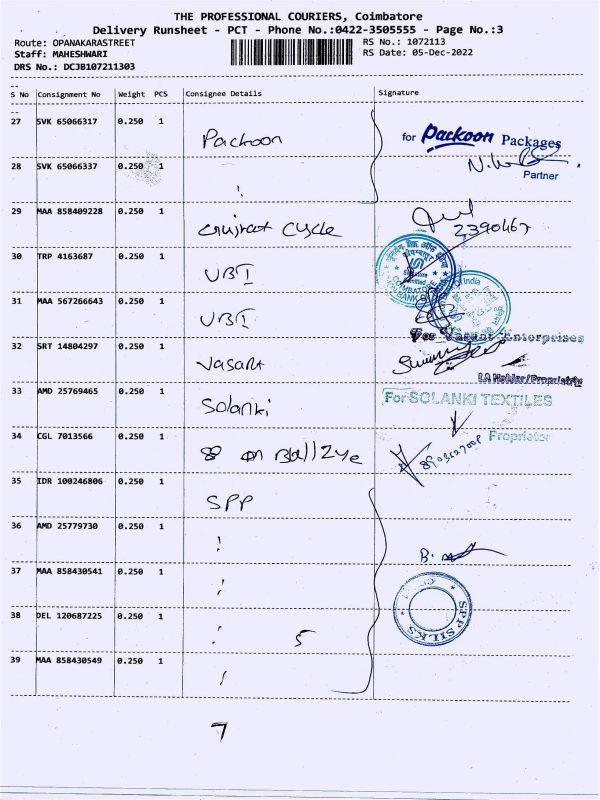 THE PROFESSIONAL COURIERS, Coimbatore
Delivery Runsheet - PCT - Phone No.:0422-3505555 - Page No.:3
Route: OPANAKARASTREET RS No.: 1072113
Staff: MAHESHWARI RS Date: 05-Dec-2022
DRS No.: DCJB107211303
S No Consignment No Weight PCS Consignee Details Signature
27 SVK 65066317 0.250 1 Packoon for Packoon Packages
28 SVK 65066337 0.250 1 Partner
29 MAA 858409228 0.250 1 Cycle
2390467
30 TRP 4163687 0.250 1 UBI
31 MAA 567266643 0.250 1 UBI
For Vasant Enterprises
32 SRT 14804297 0.250 1 Vasant
33 AMD 25769465 0.250 1 Solanki For SOLANKI TEXTILES
34 CGL 7013566 0.250 1 Proprietor
35 IDR 100246806 0.250 1 SPP
36 AMD 25779730 0.250 1
37 MAA 858430541 0.250 1
SPP SILKS
38 DEL 120687225 0.250 1 5
39 MAA 858430549 0.250 1
7